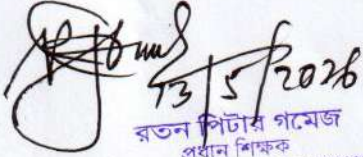 13/5/2026
রতন পিটার গমেজ
প্রধান শিক্ষক